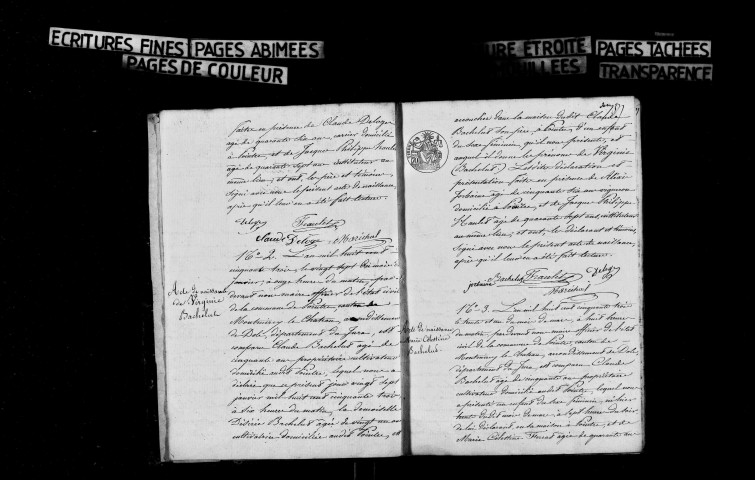 ECRITURES FINES
PAGES ABIMEES
PAGES DE COULEUR
URE ETROITE
PAGES TACHEES
OUILLEES
TRANSPARENCE
faite en présence de Claude Deloge
agé de quarante six ans, carrier domicilié
à Pointre et de Jacques Philippe Frachet
agé de quarante sept ans instituteur au
même lieu; et ont, les père et témoins
signé avec nous le présent acte de naissance,
après qu'il leur en a été fait lecture.
Deloge Frachet
Claude Deloge Maréchal
Acte de naissance
de Virginie
Bachelut
N° 2. L'an mil huit cent
cinquante trois, le vingt sept du mois de
janvier, à onze heures du matin, par
devant nous maire officier de l'état civil
de la commune de Pointre, canton de
Montmirey le Chateau, arrondissement
de Dole, département du Jura, est
comparu Claude Bachelut agé de
cinquante ans propriétaire cultivateur
domicilié audit Pointre, lequel nous a
déclaré que ce présent jour vingt sept
janvier mil huit cent cinquante trois
à six heures du matin, la demoiselle
Désirée Bachelut agée de vingt un ans
cultivatrice domiciliée audit Pointre, est
accouchée dans la maison dudit Claude
Bachelut son père, à Pointre, d'un enfant
du sexe féminin, qu'il nous présente, et
auquel il donne le prénom de Virginie
(Bachelut). Lesdites déclaration et
présentation faites en présence de
agé de cinquante six ans vigneron
domicilié à Pointre, et de Jacques Philippe
Frachet agé de quarante sept ans, instituteur
au même lieu; et ont, le Déclarant et témoins,
signé avec nous le présent acte de naissance,
après qu'il leur en a été fait lecture.
Bachelut Frachet Deloge
Maréchal
Acte de naissance
Marie Célestine
Bachelut.
N° 3. L'an mil huit cent cinquante trois
le trente et un du mois de mars, à huit heures
du matin, par devant nous maire officier de l'état
civil de la commune de Pointre, canton de
Montmirey le Chateau, arrondissement de Dole,
département du Jura, est comparu Claude
Bachelut agé de cinquante ans propriétaire
cultivateur domicilié audit Pointre, lequel nous
a présenté un enfant du sexe féminin, né hier
trente dudit mois de mars, à sept heures du soir
de lui déclarant, en sa maison à Pointre, et de
Marie Célestine agée de quarante ans